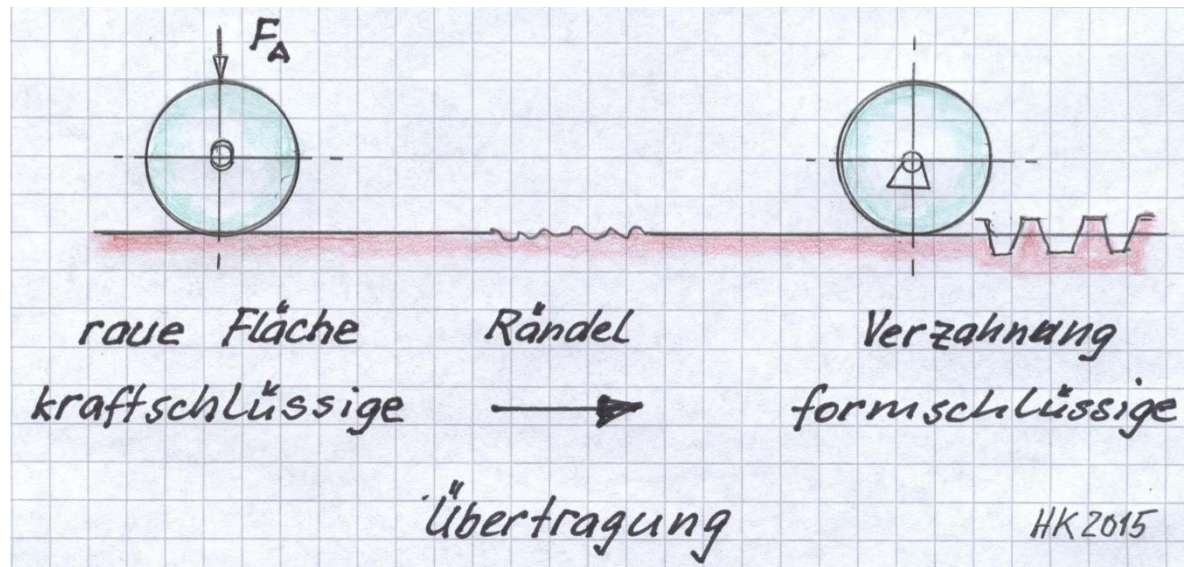 F_A
raue Fläche Rändel Verzahnung
kraftschlüssige formschlüssige
Übertragung
HK 2015